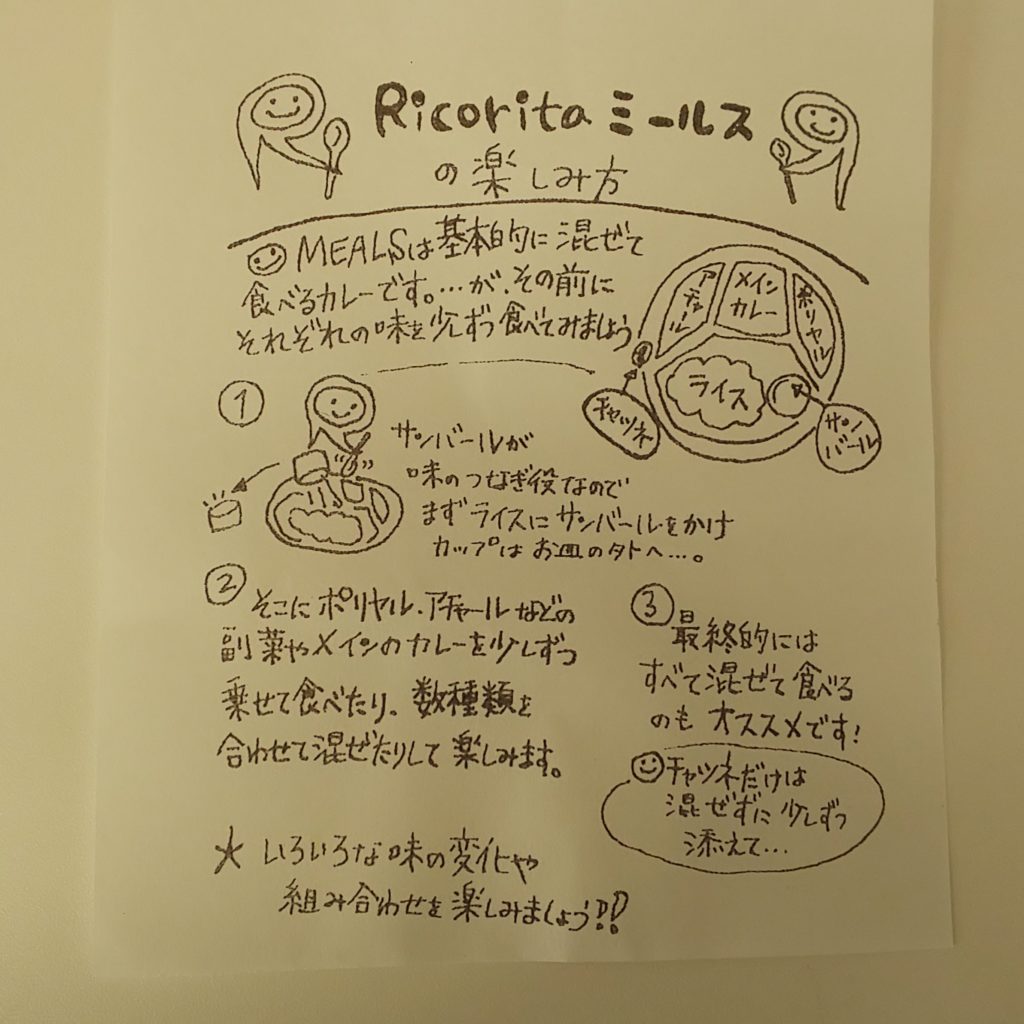 Ricorita ミールス
の楽しみ方
MEALSは基本的に混ぜて
食べるカレーです。…が、その前に
それぞれの味を少しずつ食べてみましょう
アチャール
メイン
カレー
ポリヤル
ライス
チャツネ
サン
バール
①
サンバールが
味のつなぎ役なので
まずライスにサンバールをかけ
カップはお皿の外へ…。
②
そこにポリヤル・アチャールなどの
副菜やメインのカレーを少しずつ
乗せて食べたり、数種類を
合わせて混ぜたりして楽しみます。
③
最終的には
すべて混ぜて食べる
のもオススメです!
チャツネだけは
混ぜずに少しずつ
添えて…
★ いろいろな味の変化や
組み合わせを楽しみましょう!!